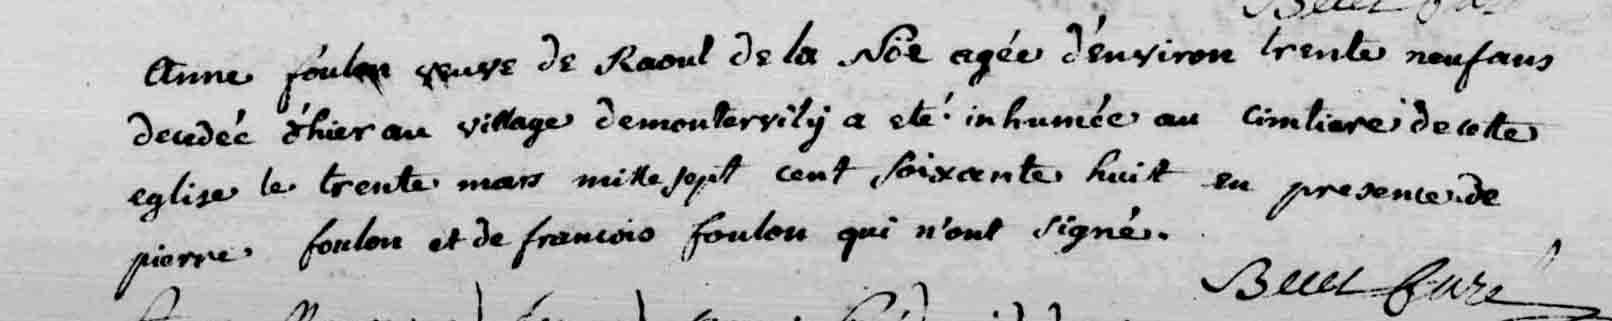 Anne foulon veuve de Raoul de la Nöe agée d'environ trente neuf ans
decedée d'hier au village de montervily a eté inhumée au cimtiere de cette
eglise le trente mars mille sept cent soixante huit en presence de
pierre foulon et de francois foulon qui n'ont signé.
Curé